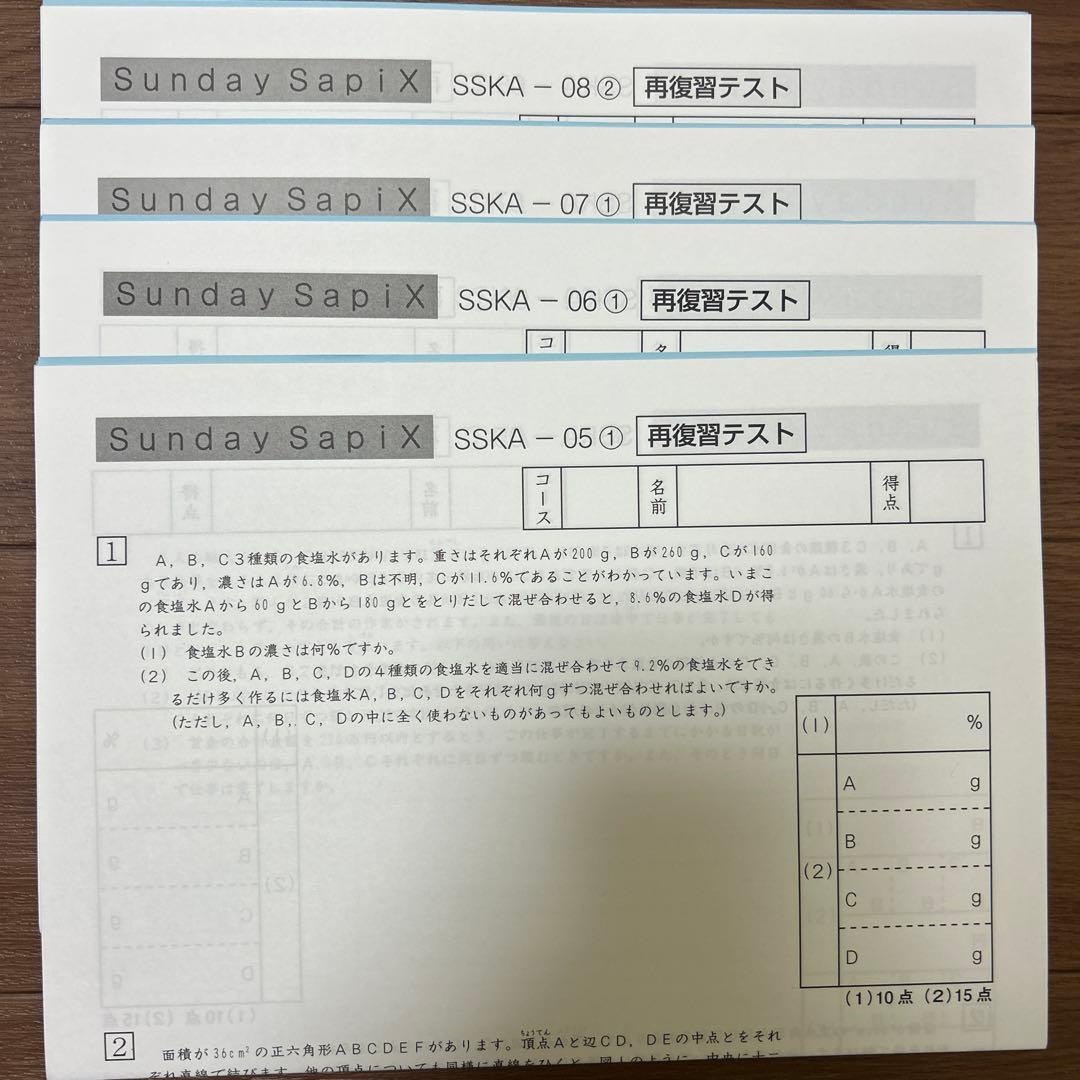 Sunday SapiX SSKA－08② 再復習テスト
Sunday SapiX SSKA－07① 再復習テスト
Sunday SapiX SSKA－06① 再復習テスト
Sunday SapiX SSKA－05① 再復習テスト
コース 名前 得点
1 A，B，C3種類の食塩水があります。重さはそれぞれAが200g，Bが260g，Cが160
gであり，濃さはAが6.8%，Bは不明，Cが11.6%であることがわかっています。いまこ
の食塩水Aから60gとBから180gとをとりだして混ぜ合わせると，8.6%の食塩水Dが得
られました。
(1) 食塩水Bの濃さは何%ですか。
(2) この後，A，B，C，Dの4種類の食塩水を適当に混ぜ合わせて9.2%の食塩水をでき
るだけ多く作るには食塩水A，B，C，Dをそれぞれ何gずつ混ぜ合わせればよいですか。
(ただし，A，B，C，Dの中に全く使わないものがあってもよいものとします。)
(1) %
(2)
A g
B g
C g
D g
(1)10点 (2)15点
2 面積が36cm²の正六角形ABCDEFがあります。頂点Aと辺CD，DEの中点とをそれ
ちょうてん